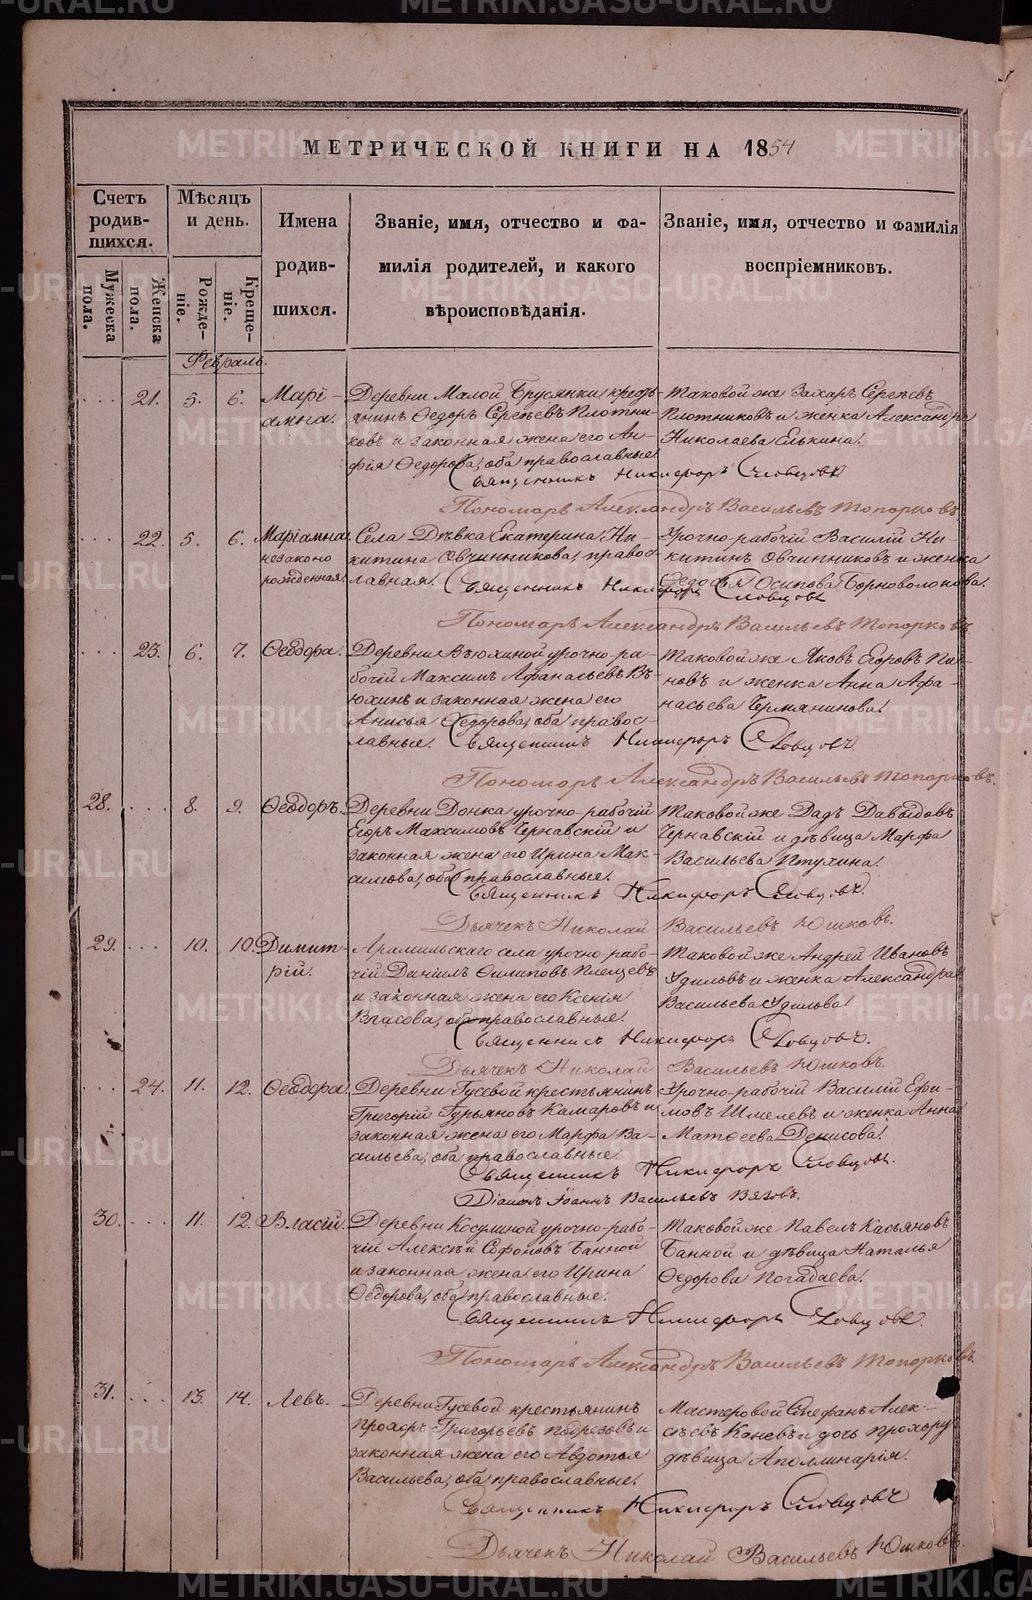 METRIKI.GASO-URAL.RU
МЕТРИЧЕСКОЙ КНИГИ НА 1854
Счетъ родив-шихся.
Мужеска пола.
Женска пола.
Мѣсяцъ и день.
Рожде-ніе.
Креще-ніе.
Имена родив-шихся.
Званіе, имя, отчество и фа-
милія родителей, и какого
вѣроисповѣданія.
Званіе, имя, отчество и фамилія
воспріемниковъ.
Февраль.
21. 5. 6. Марі-амна.
Деревни Малой Брусянки кресть-
янинъ Ѳедоръ Сергѣевъ Плотни-
ковъ и законная жена его Ан-
фія Ѳедорова, оба православные.
Таковой же Захаръ Сергѣевъ
Плотниковъ и женка Александра
Николаева Елькина.
Священникъ Никифоръ Словцовъ
Пономарь Александръ Васильевъ Топорковъ
22. 5. 6. Маріамна незаконо рожденная.
Села Дѣвка Екатерина Ни-
китина Овчинникова, правос-
лавная.
Урочно-рабочій Василій Ни-
китинъ Овчинниковъ и женка
Ѳедосья Осипова Черноволокова.
Священникъ Никифоръ Словцовъ
Пономарь Александръ Васильевъ Топорковъ
23. 6. 7. Ѳеодора.
Деревни Вьюхиной урочно-ра-
бочій Максимъ Афанасьевъ Вь-
юхинъ и законная жена его
Анисья Ѳедорова, оба правос-
лавные.
Таковой же Яковъ Егоровъ
и женка Анна Афа-
насьева Чермянинова.
Священникъ Никифоръ Словцовъ.
Пономарь Александръ Васильевъ Топорковъ.
28. 8. 9. Ѳеодоръ.
Деревни Донка урочно-рабочій
Егоръ Максимовъ Чернавскій и
законная жена его Ирина Мак-
симова, оба православные.
Таковой же Давыдовъ
Чернавскій и дѣвица Марфа
Васильева Птухина.
Священникъ Никифоръ Словцовъ.
Дьячекъ Николай Васильевъ Юшковъ.
29. 10. 10. Димит-рій.
Арамильскаго села урочно-рабо-
чій Даніилъ Филиповъ Плещевъ
и законная жена его Ксенія
Власова, оба православные.
Таковой же Андрей Ивановъ
Удиловъ и женка Александра
Васильева Удилова.
Священникъ Никифоръ Словцовъ.
Дьячекъ Николай Васильевъ Юшковъ.
24. 11. 12. Ѳеодора.
Деревни Гусевой крестьянинъ
Григорій Гурьяновъ Камаровъ и
законная жена его Марфа Ва-
сильева, оба православные.
Урочно-рабочій Василій Ефи-
мовъ Шмелевъ и женка Анна
Матѳеева Денисова.
Священникъ Никифоръ Словцовъ.
Діаконъ Іоаннъ Васильевъ
30. 11. 12. Власій.
Деревни Косулиной урочно-рабо-
чій Алексѣй Софоновъ Банной
и законная жена его Ирина
Ѳедорова, оба православные.
Таковой же Павелъ Касьяновъ
Банной и дѣвица Наталья
Ѳедорова Погадаева.
Священникъ Никифоръ Словцовъ
Пономарь Александръ Васильевъ Топорковъ.
31. 13. 14. Левъ.
Деревни Гусевой крестьянинъ
Прохоръ Григорьевъ Подрезовъ и
законная жена его Авдотья
Васильева, оба православные.
Мастеровой Стефанъ Алек-
сѣевъ Каневъ и дочь Прохору
дѣвица Аполлинарія.
Священникъ Никифоръ Словцовъ
Дьячекъ Николай Васильевъ Юшковъ.